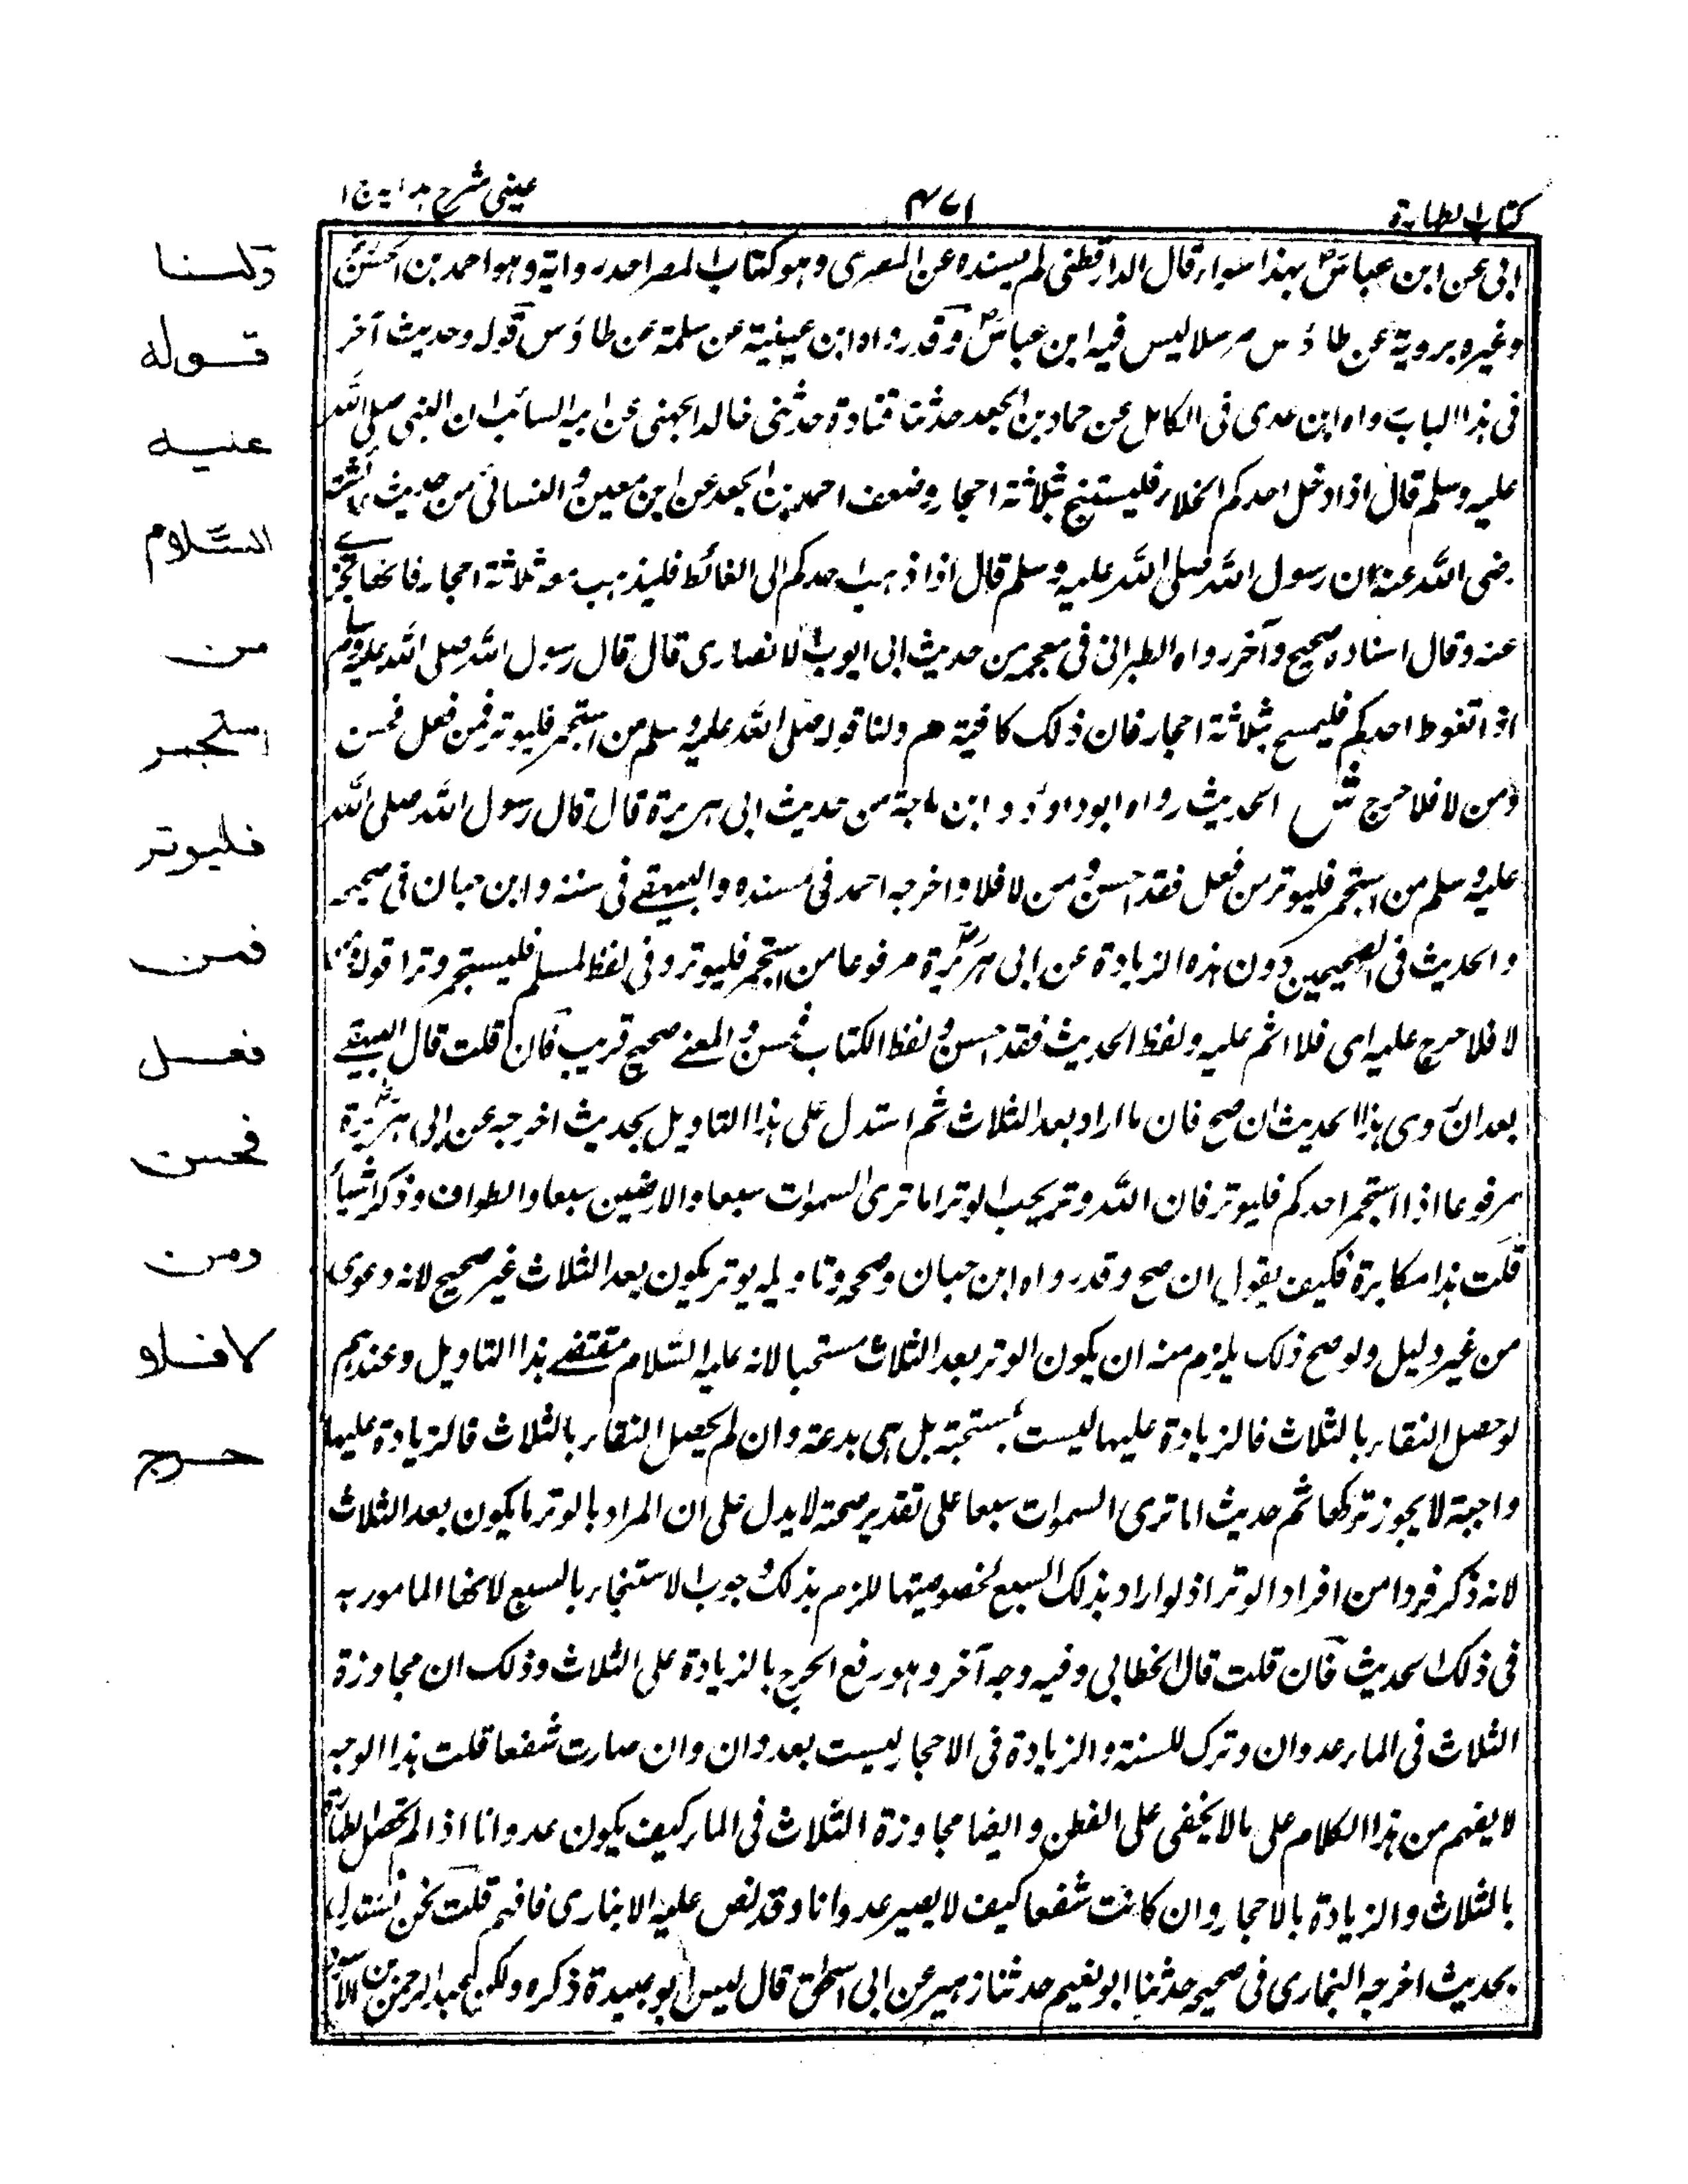 كتاب الطهارة
٤٧١
عيني شرح هداية ج ١
ابي عن ابن عباسؓ بهذا سواء قال الدارقطني لم يسنده عن المصري وهو كتاب المصر احد رواية وهو احمد بن الحسن
وغيره برويه عن طاؤس مرسلا ليس فيه ابن عباسؓ وقد رواه ابن عيينة عن سلمة عن طاؤس قوله وحديث آخر
في هذا الباب رواه ابن عدي في الكامل عن حماد بن الجعد حدثنا قتادة حدثني خالد الجهني عن ابيه السائب ان النبي صلى الله
عليه وسلم قال اذا دخل احدكم الخلاء فليستنج بثلاثة احجار وضعف احمد بن الجعد عن ابن معين والنسائي من حديث عائشة
رضي الله عنها ان رسول الله صلى الله عليه وسلم قال اذا ذهب احدكم الى الغائط فليذهب معه ثلاثة احجار فانها تجزئ
عنه وقال اسناده صحيح وآخر رواه الطبراني في معجمه من حديث ابي ايوب الانصاري قال قال رسول الله صلى الله عليه وسلم
اذا تغوط احدكم فليمسح بثلاثة احجار فان ذلك كافية هم ولنا قوله صلى الله عليه وسلم من استجمر فليوتر فمن فعل فحسن
ومن لا فلا حرج ش الحديث رواه ابو داؤد و ابن ماجة من حديث ابي هريرة قال قال رسول الله صلى الله
عليه وسلم من استجمر فليوتر من فعل فقد احسن ومن لا فلا واخرجه احمد في مسنده والبيهقي في سننه وابن حبان في صحيحه
والحديث في الصحيحين دون هذه الزيادة عن ابي هريرةؓ مرفوعا من استجمر فليوتر وفي لفظ لمسلم فليستجمر وترا قوله ومن
لا فلا حرج عليه اي فلا اثم عليه ولفظ الحديث فقد احسن ولفظ الكتاب فحسن والمعنى صحيح قريب فان قلت قال البيهقي
بعد ان روى هذا الحديث ان صح فان ما اراد بعد الثلاث ثم استدل على هذا التاويل بحديث اخرجه عن ابي هريرةؓ
مرفوعا اذا استجمر احدكم فليوتر فان الله وتر يحب الوتر اما ترى السموات سبعا والارضين سبعا والطواف وذكر اشياء
قلت هذا مكابرة فكيف يقول ان صح وقد رواه ابن حبان وصححه وتاويله يوتر يكون بعد الثلاث غير صحيح لانه دعوى
من غير دليل ولو صح ذلك يلزم منه ان يكون الوتر بعد الثلاث مستحبا لانه عليه السلام مقتضى هذا التاويل وعندهم
لو حصل النقاء بالثلاث فالزيادة عليها ليست بمستحبة بل هي بدعة وان لم يحصل النقاء بالثلاث فالزيادة عليها
واجبة لا يجوز تركها ثم حديث اما ترى السموات سبعا على تقدير صحته لا يدل على ان المراد بالوتر ما يكون بعد الثلاث
لانه ذكر فردا من افراد الوتر اذ لو اراد بذلك السبع لخصوصيتها للزم بذلك وجوب الاستنجاء بالسبع لانها المامور به
في ذلك الحديث فان قلت قال الخطابي وفيه وجه آخر وهو رفع الحرج بالزيادة على الثلاث وذلك ان مجاوزة
الثلاث في الماء عدوان وترك للسنة والزيادة في الاحجار ليست بعدوان وان صارت شفعا قلت هذا الوجه
لا يفهم من هذا الكلام على مالا يخفى على الفطن وايضا مجاوزة الثلاث في الماء كيف يكون عدوانا اذا لم تحصل الطهارة
بالثلاث والزيادة بالاحجار وان كانت شفعا كيف لا يصير عدوانا وقد نص عليه الانباري فافهم قلت نحن نستدل
بحديث اخرجه البخاري في صحيحه حدثنا ابو نعيم حدثنا زهير عن ابي اسحٰق قال ليس ابو عبيدة ذكره ولكن عبد الرحمن بن الاسود
ولنا
قوله
عليه
السّلام
من
استجمر
فليوتر
فمن
فعل
فحسن
ومن
لا فلا
حرج